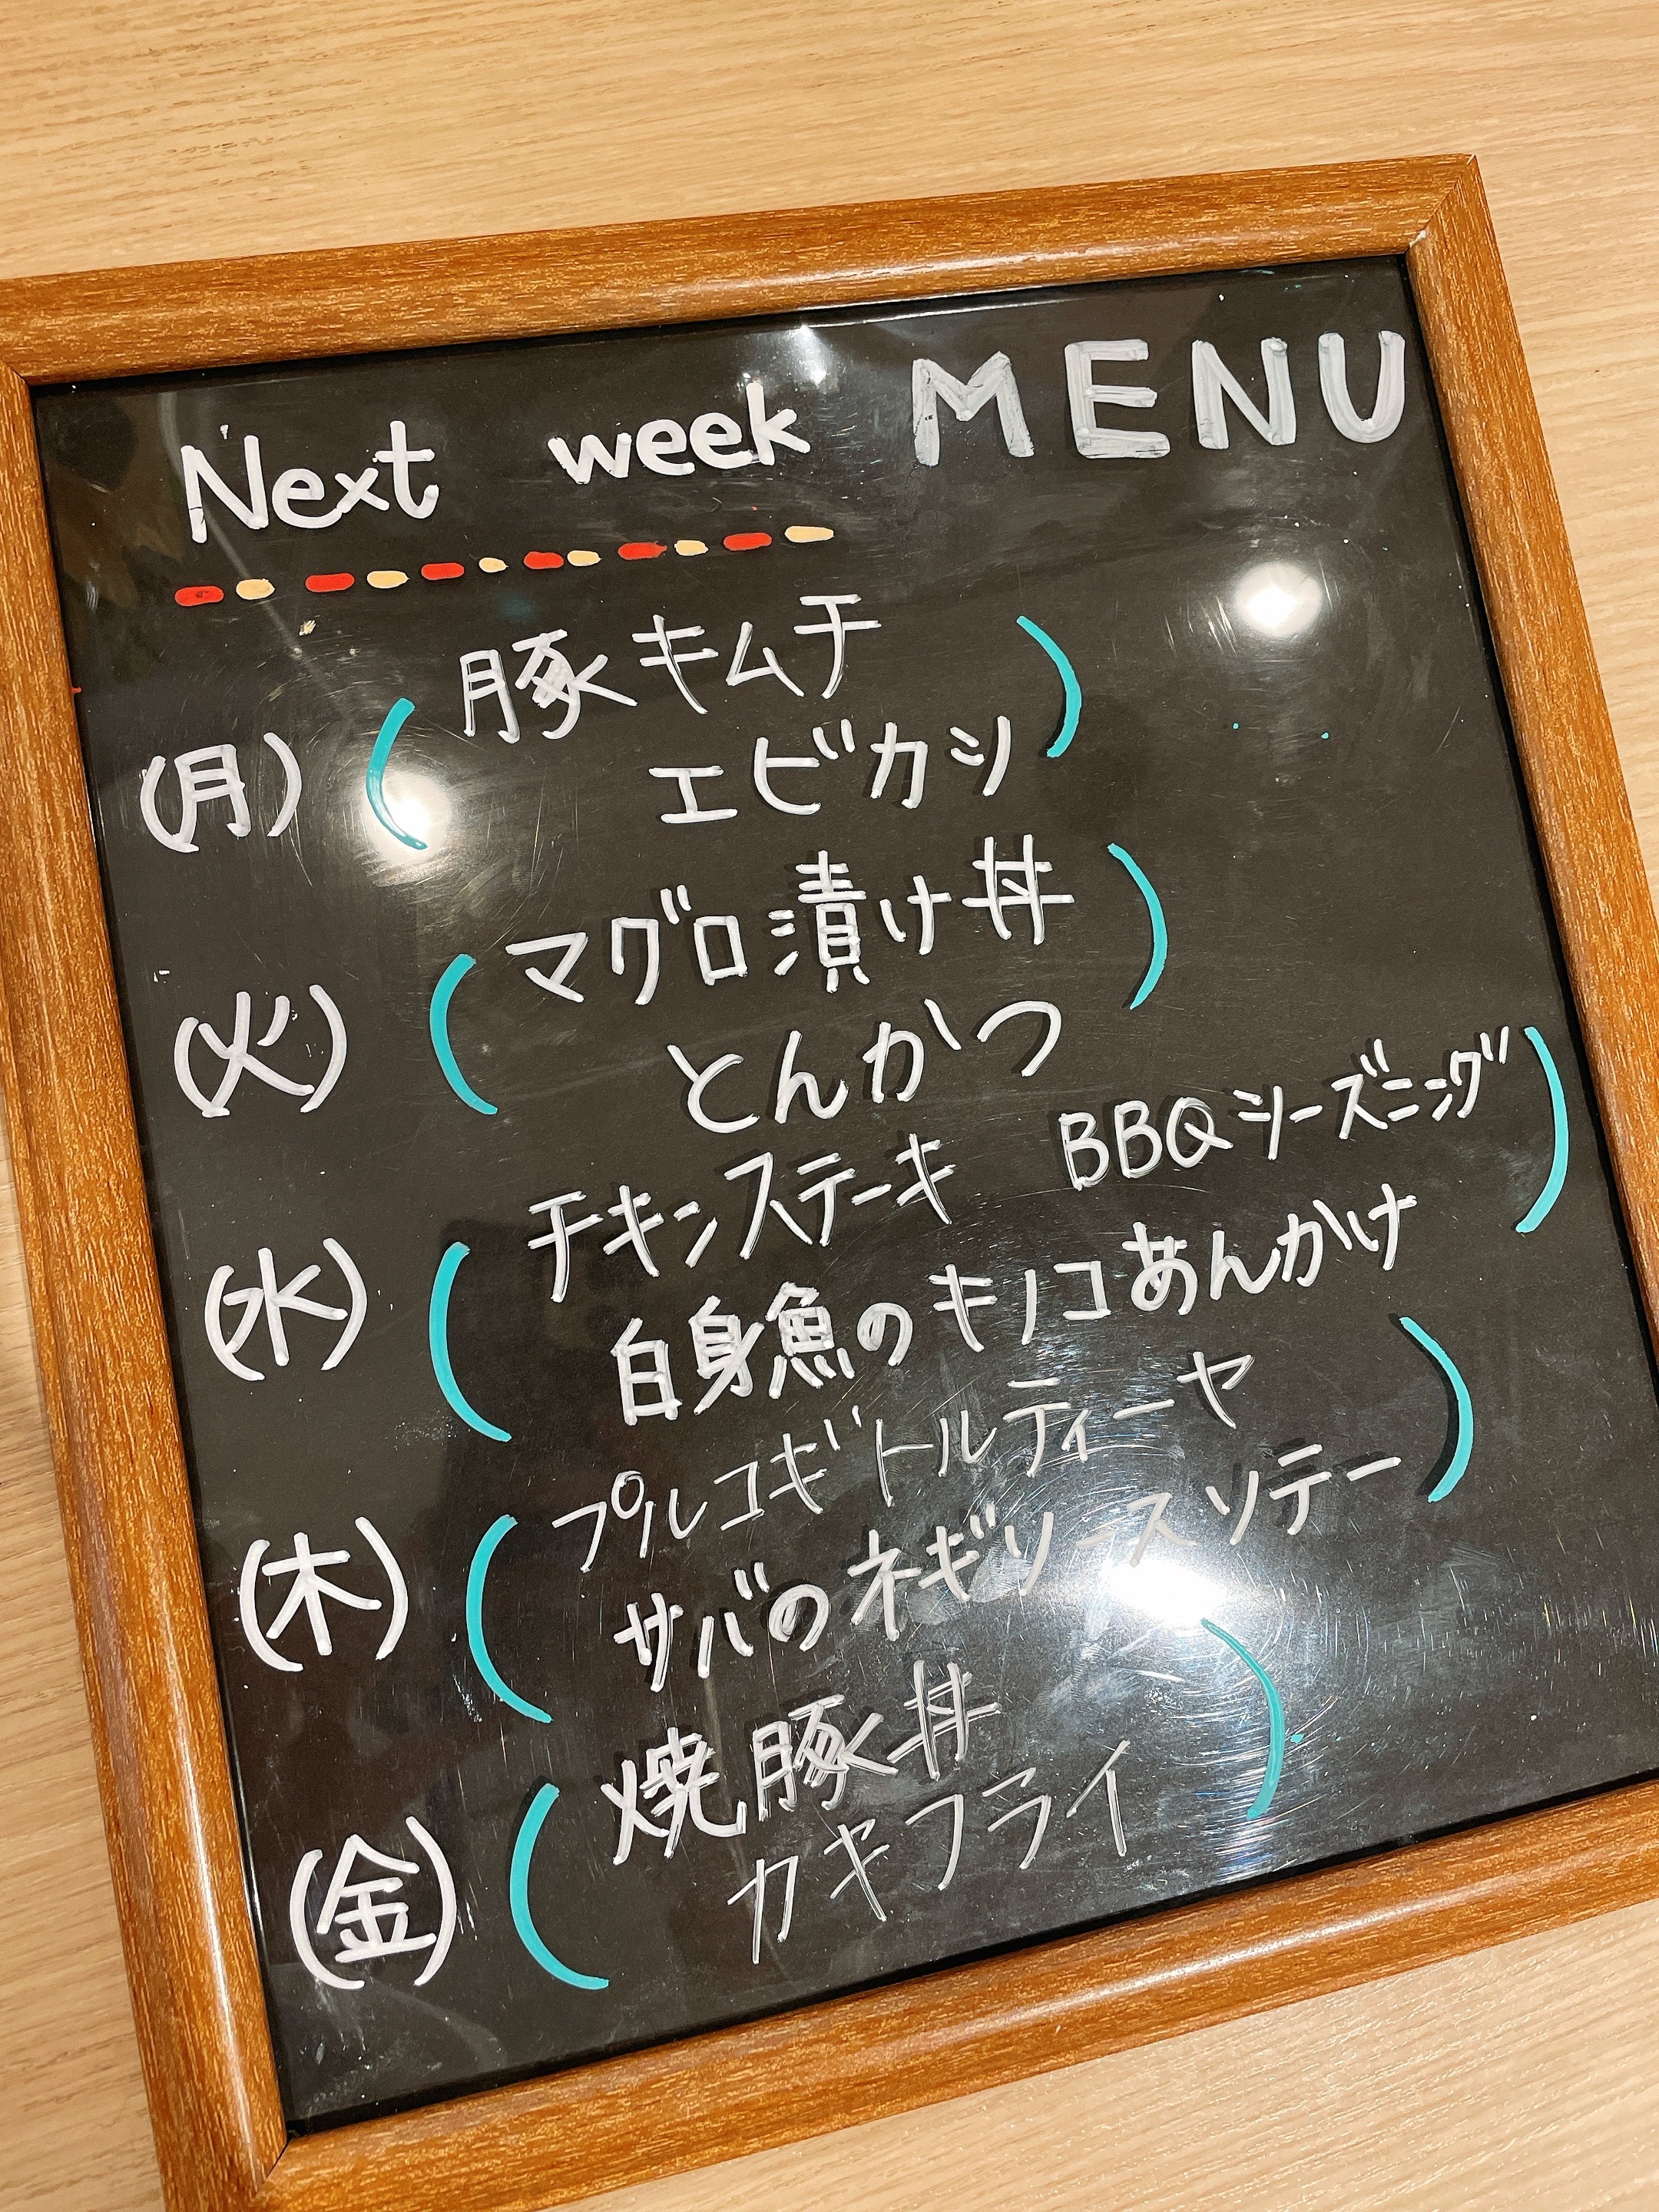 Next week MENU
(月) 豚キムチ
エビカツ
(火) マグロ漬け丼
とんかつ
(水) チキンステーキ BBQシーズニング
白身魚のキノコあんかけ
(木) プルコギトルティーヤ
サバのネギソースソテー
(金) 焼豚丼
カキフライ